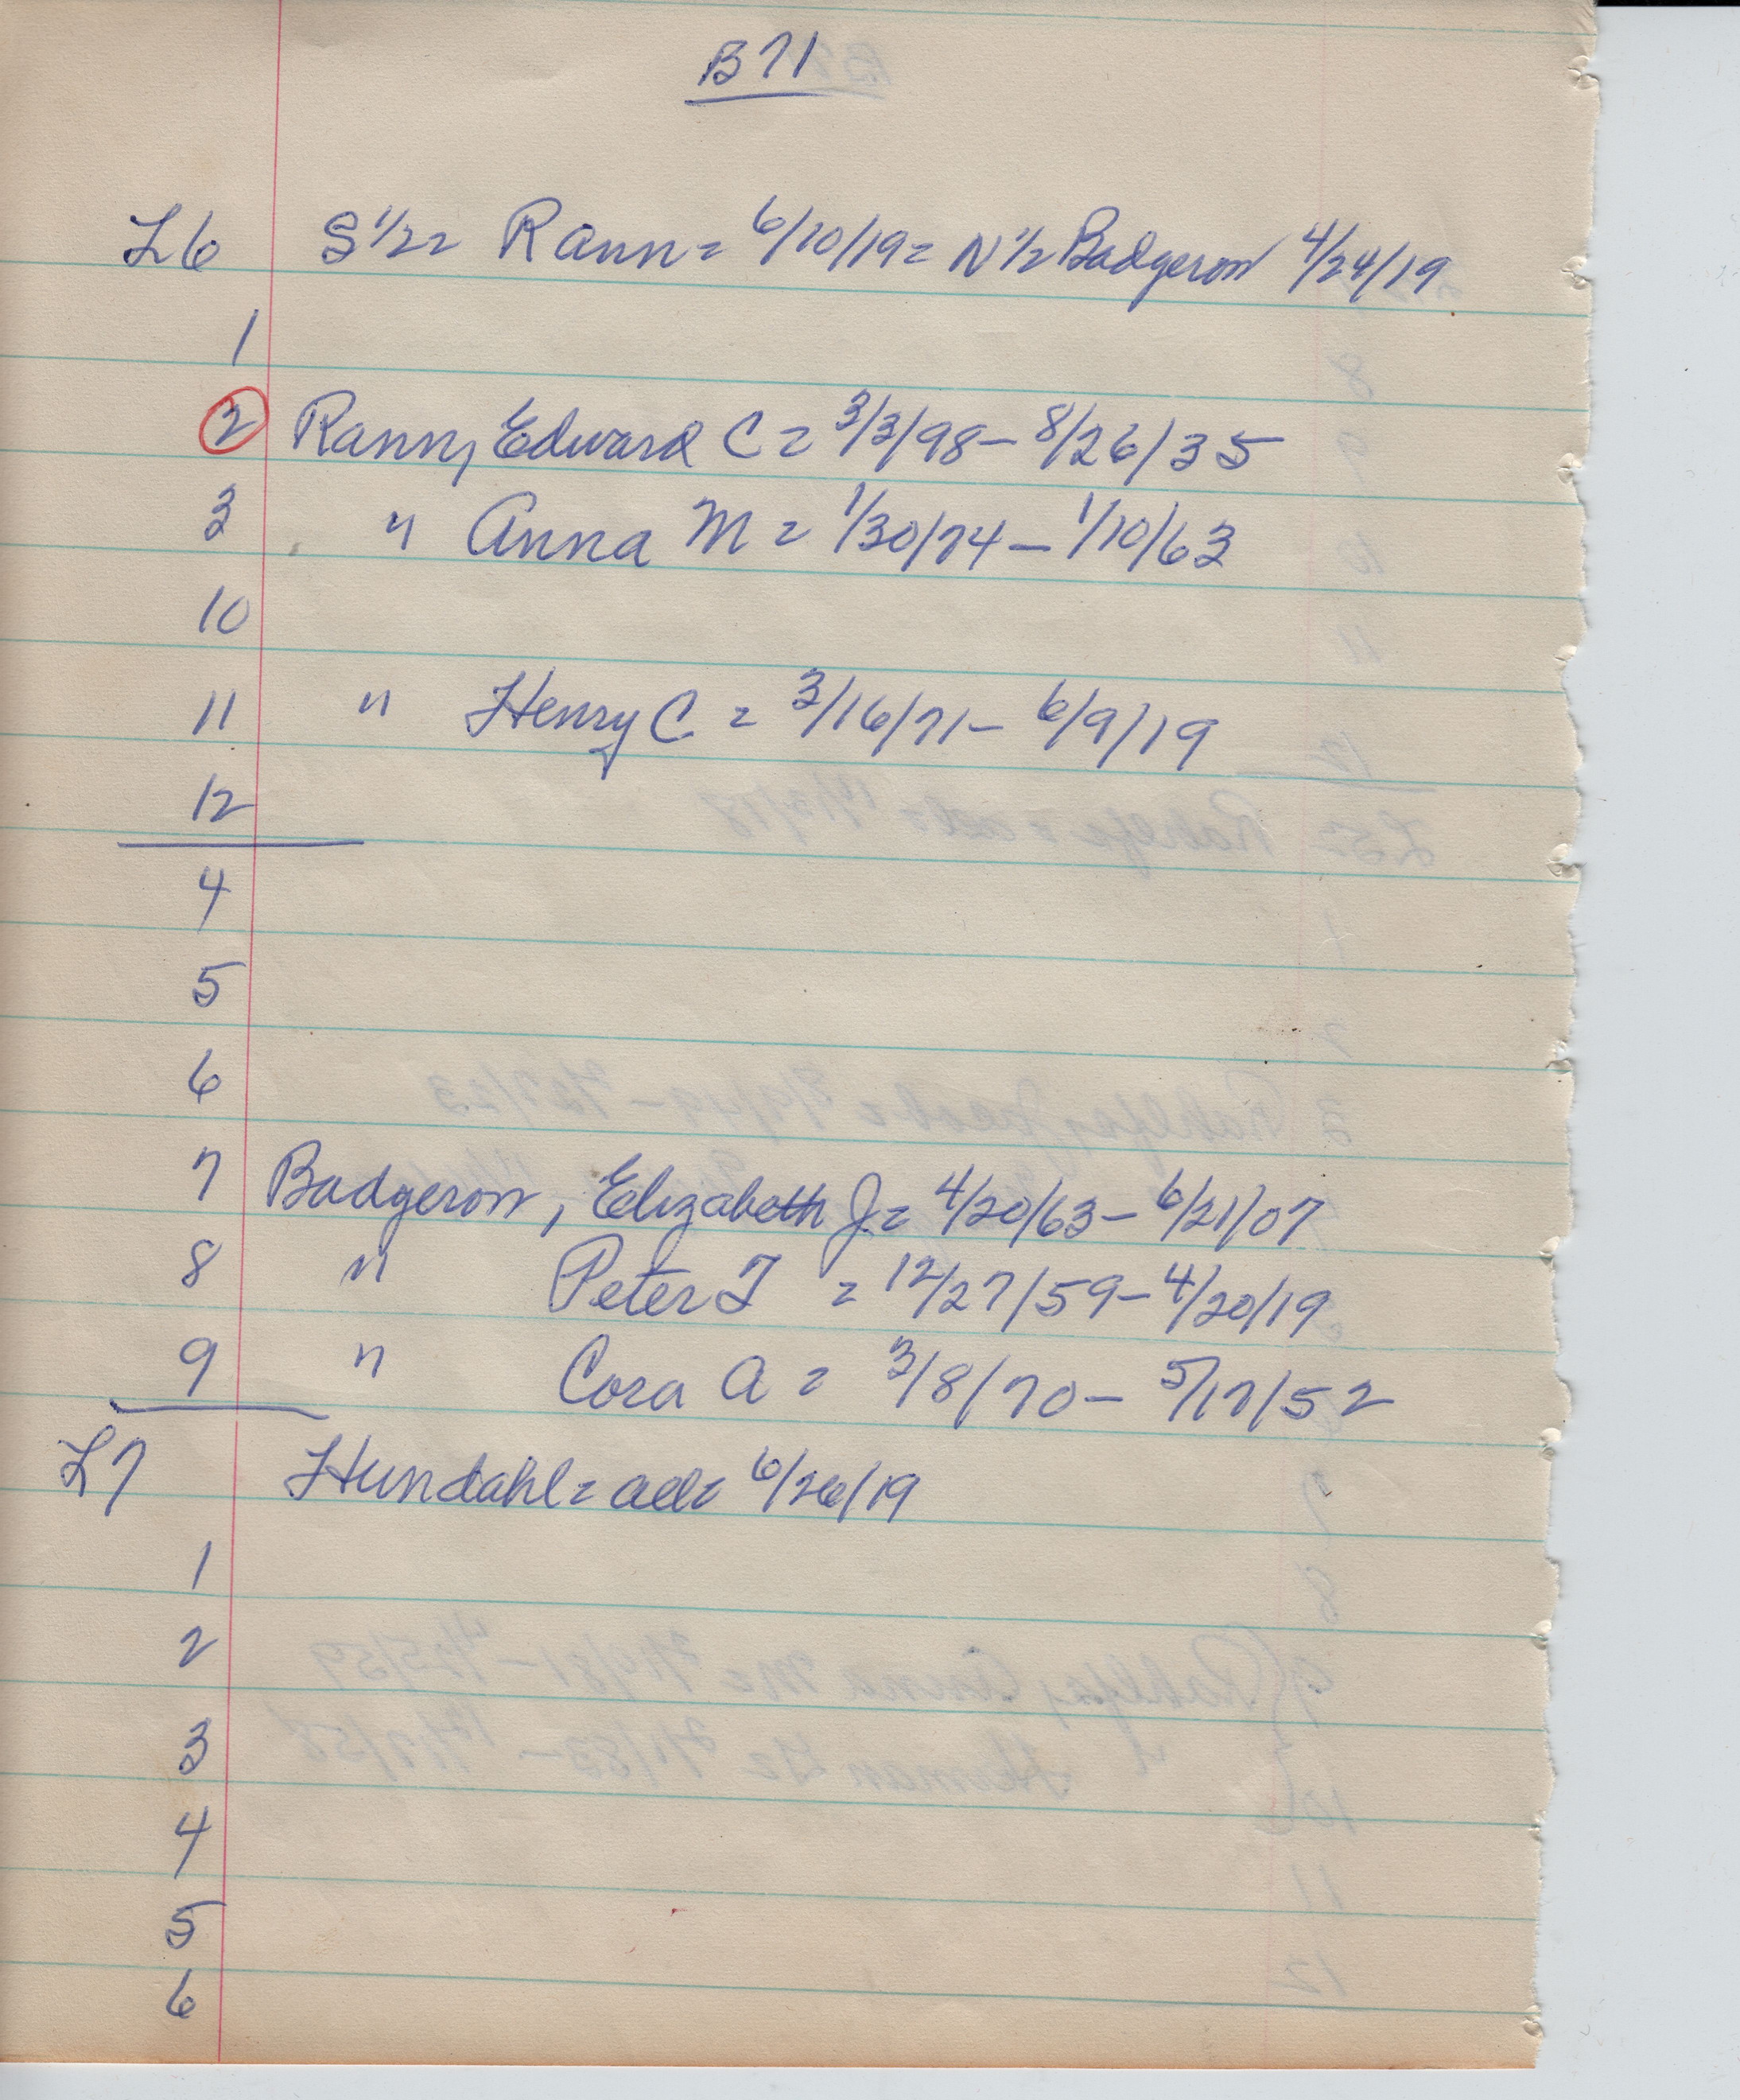 B71
L6 S 1/2 = Rann = 6/10/19 = N 1/2 Badgerow 4/24/19
1
2 Rann, Edward C = 3/3/98 - 8/26/35
3 " Anna M = 1/30/74 - 1/10/63
10
11 " Henry C = 3/16/71 - 6/9/19
12
4
5
6
7 Badgerow, Elizabeth J = 4/20/63 - 6/21/07
8 " Peter T = 12/27/59 - 4/20/19
9 " Cora A = 3/8/70 - 5/17/52
L7 Hundahl = all = 6/26/19
1
2
3
4
5
6